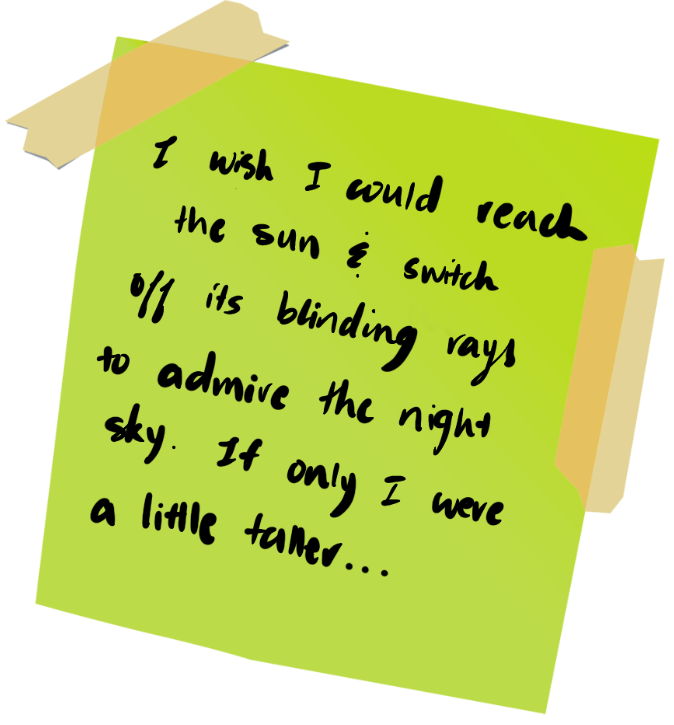 I wish I could reach
the sun & switch
off its blinding rays
to admire the night
sky. If only I were
a little taller...